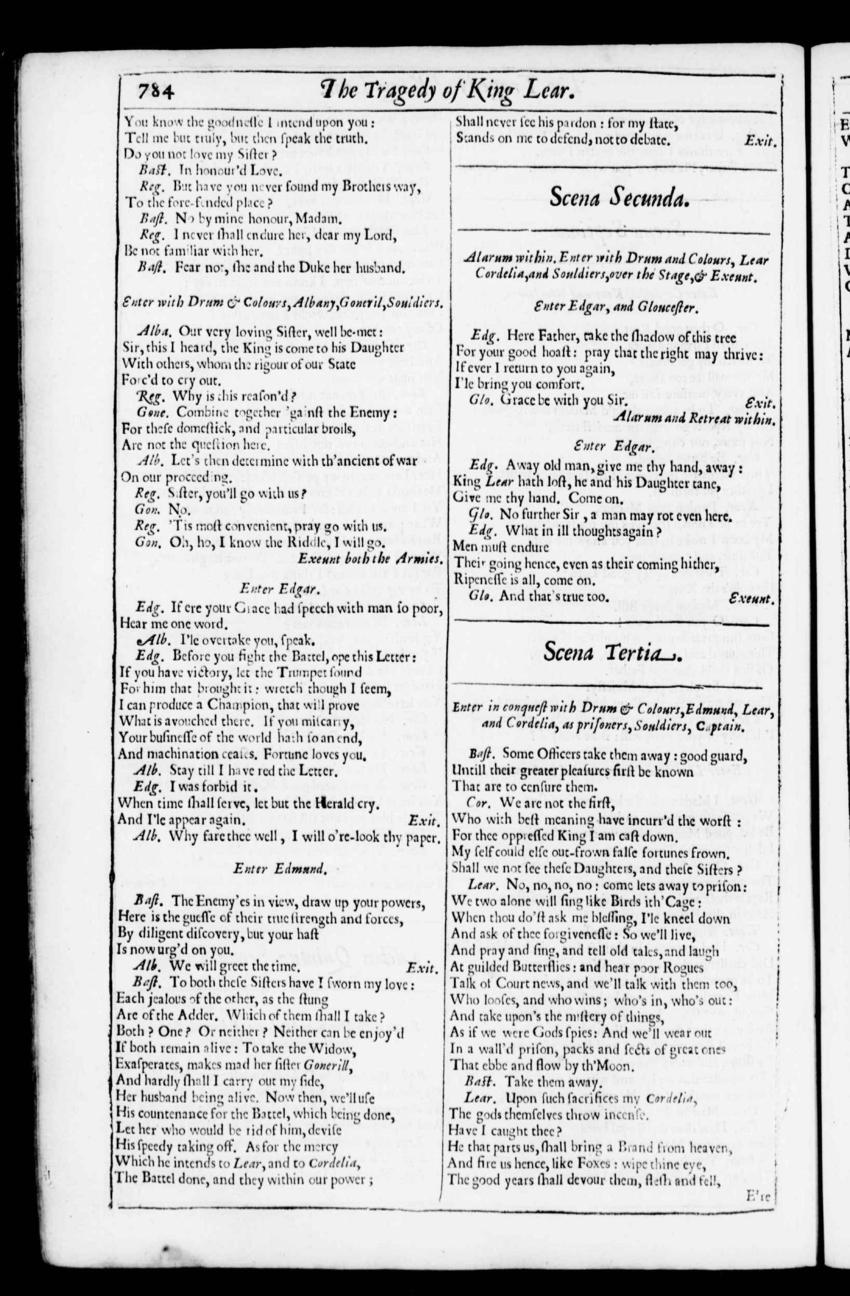 784 The Tragedy of King Lear.
You know the goodneſſe I intend upon you:
Tell me but truly, but then ſpeak the truth.
Do you not love my Siſter?
Baſt. In honour'd Love.
Reg. But have you never found my Brothers way,
To the fore-fended place?
Baſt. No by mine honour, Madam.
Reg. I never ſhall endure her, dear my Lord,
Be not familiar with her.
Baſt. Fear not, ſhe and the Duke her husband.
Enter with Drum & Colours, Albany, Goneril, Souldiers.
Alba. Our very loving Siſter, well be-met:
Sir, this I heard, the King is come to his Daughter
With others, whom the rigour of our State
Forc'd to cry out.
Reg. Why is this reaſon'd?
Gone. Combine together 'gainſt the Enemy:
For theſe domeſtick, and particular broils,
Are not the queſtion here.
Alb. Let's then determine with th'ancient of war
On our proceeding.
Reg. Siſter, you'll go with us?
Gon. No.
Reg. 'Tis moſt convenient, pray go with us.
Gon. Oh, ho, I know the Riddle, I will go.
Exeunt both the Armies.
Enter Edgar.
Edg. If ere your Grace had ſpeech with man ſo poor,
Hear me one word.
Alb. I'le overtake you, ſpeak.
Edg. Before you fight the Battel, ope this Letter:
If you have victory, let the Trumpet ſound
For him that brought it: wretch though I ſeem,
I can produce a Champion, that will prove
What is avouched there. If you miſcarry,
Your buſineſſe of the world hath ſo an end,
And machination ceaſes. Fortune loves you.
Alb. Stay till I have red the Letter.
Edg. I was forbid it.
When time ſhall ſerve, let but the Herald cry.
And I'le appear again. Exit.
Alb. Why fare thee well, I will o're-look thy paper.
Enter Edmund.
Baſt. The Enemy'es in view, draw up your powers,
Here is the gueſſe of their true ſtrength and forces,
By diligent diſcovery, but your haſt
Is now urg'd on you.
Alb. We will greet the time. Exit.
Baſt. To both theſe Siſters have I ſworn my love:
Each jealous of the other, as the ſtung
Are of the Adder. Which of them ſhall I take?
Both? One? Or neither? Neither can be enjoy'd
If both remain alive: To take the Widow,
Exaſperates, makes mad her ſiſter Gonerill,
And hardly ſhall I carry out my ſide,
Her husband being alive. Now then, we'll uſe
His countenance for the Battel, which being done,
Let her who would be rid of him, deviſe
His ſpeedy taking off. As for the mercy
Which he intends to Lear, and to Cordelia,
The Battel done, and they within our power;
Shall never ſee his pardon: for my ſtate,
Stands on me to defend, not to debate. Exit.
Scena Secunda.
Alarum within. Enter with Drum and Colours, Lear
Cordelia, and Souldiers, over the Stage, & Exeunt.
Enter Edgar, and Glouceſter.
Edg. Here Father, take the ſhadow of this tree
For your good hoaſt: pray that the right may thrive:
If ever I return to you again,
I'le bring you comfort.
Glo. Grace be with you Sir. Exit.
Alarum and Retreat within.
Enter Edgar.
Edg. Away old man, give me thy hand, away:
King Lear hath loſt, he and his Daughter tane,
Give me thy hand. Come on.
Glo. No further Sir, a man may rot even here.
Edg. What in ill thoughts again?
Men muſt endure
Their going hence, even as their coming hither,
Ripeneſſe is all, come on.
Glo. And that's true too. Exeunt.
Scena Tertia.
Enter in conqueſt with Drum & Colours, Edmund, Lear,
and Cordelia, as priſoners, Souldiers, Captain.
Baſt. Some Officers take them away: good guard,
Untill their greater pleaſures firſt be known
That are to cenſure them.
Cor. We are not the firſt,
Who with beſt meaning have incurr'd the worſt:
For thee oppreſſed King I am caſt down,
My ſelf could elſe out-frown falſe fortunes frown.
Shall we not ſee theſe Daughters, and theſe Siſters?
Lear. No, no, no, no: come lets away to priſon:
We two alone will ſing like Birds ith'Cage:
When thou do'ſt ask me bleſſing, I'le kneel down
And ask of thee forgiveneſſe: So we'll live,
And pray and ſing, and tell old tales, and laugh
At guilded Butterflies: and hear poor Rogues
Talk of Court news, and we'll talk with them too,
Who looſes, and who wins; who's in, who's out:
And take upon's the myſtery of things,
As if we were Gods ſpies: And we'll wear out
In a wall'd priſon, packs and ſects of great ones
That ebbe and flow by th'Moon.
Baſt. Take them away.
Lear. Upon ſuch ſacrifices my Cordelia,
The gods themſelves throw incenſe.
Have I caught thee?
He that parts us, ſhall bring a Brand from heaven,
And fire us hence, like Foxes: wipe thine eye,
The good years ſhall devour them, fleſh and fell,
E're